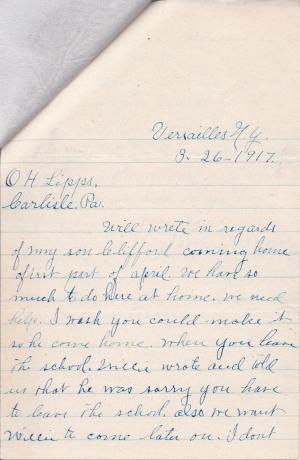 Versailles N.Y.
3-26-1917.
O H Lipps.
Carlisle. Pa.
Will wrote in regards
of my son Clifford coming home
of first part of april. We have so
much to do here at home. we need
help. I wish you could make it
so he come home. when you leave
the school. Willie wrote and told
us that he was sorry you have
to leave the school. also we want
Willie to come later on. I dont